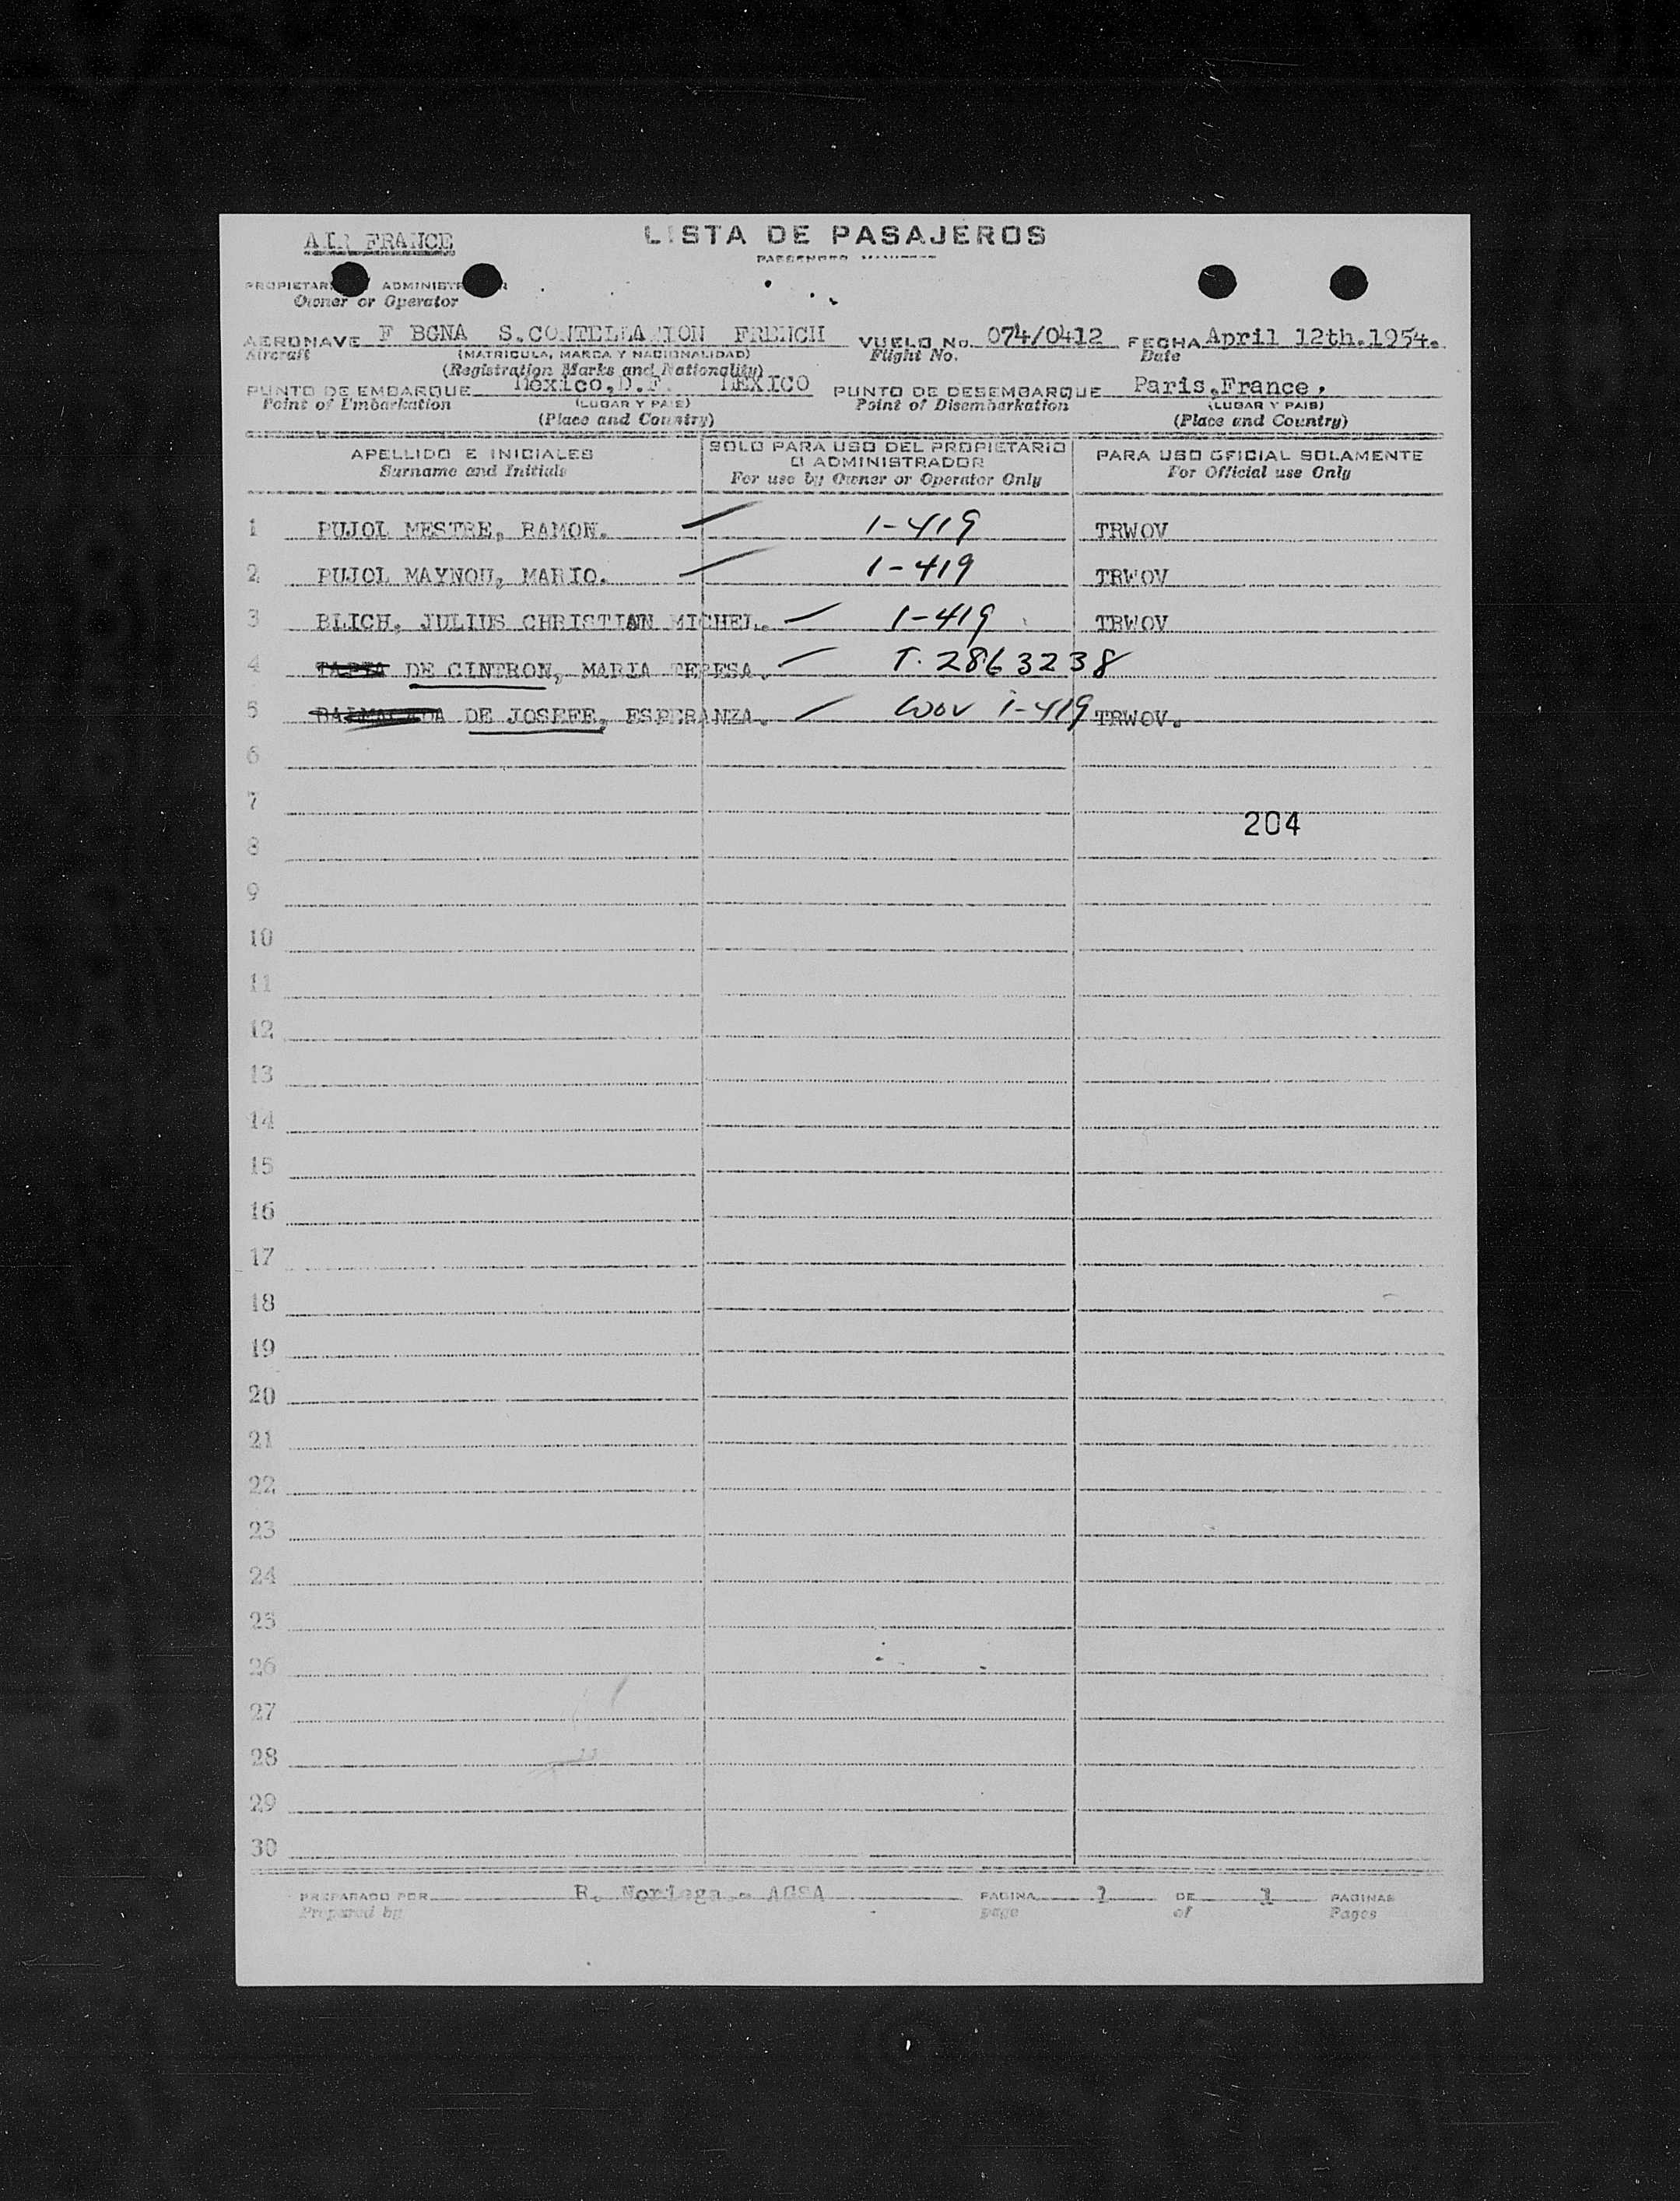 AIR FRANCE
LISTA DE PASAJEROS
PASSENGER MANIFEST
PROPIETARIO ADMINISTRADOR
Owner or Operator
AERONAVE F BGNA S.CONTELLATION FRENCH VUELO No. 074/0412 FECHA April 12th.1954.
Aircraft (MATRICULA, MARCA Y NACIONALIDAD) Flight No. Date
(Registration Marks and Nationality)
PUNTO DE EMBARQUE México,D.F. MEXICO PUNTO DE DESEMBARQUE Paris,France,
Point of Embarkation (LUGAR Y PAIS) Point of Disembarkation (LUGAR Y PAIS)
(Place and Country) (Place and Country)
APELLIDO E INICIALES SOLO PARA USO DEL PROPIETARIO O ADMINISTRADOR PARA USO OFICIAL SOLAMENTE
Surname and Initials For use by Owner or Operator Only For Official use Only
1 PUJOL MESTRE, RAMON. 1-419 TRWOV
2 PUJOL MAYNOU, MARIO. 1-419 TRWOV
3 BLICH, JULIUS CHRISTIAN MICHEL. 1-419 TRWOV
4 TAPIA DE CINTRON, MARIA TERESA. T. 2863238
5 DE JOSEFE, ESPERANZA. WOV 1-419 TRWOV.
6
7
204
8
9
10
11
12
13
14
15
16
17
18
19
20
21
22
23
24
25
26
27
28
29
30
PREPARADO POR R. Noriega - AGSA PAGINA 1 DE 1 PAGINAS
Prepared by page of Pages